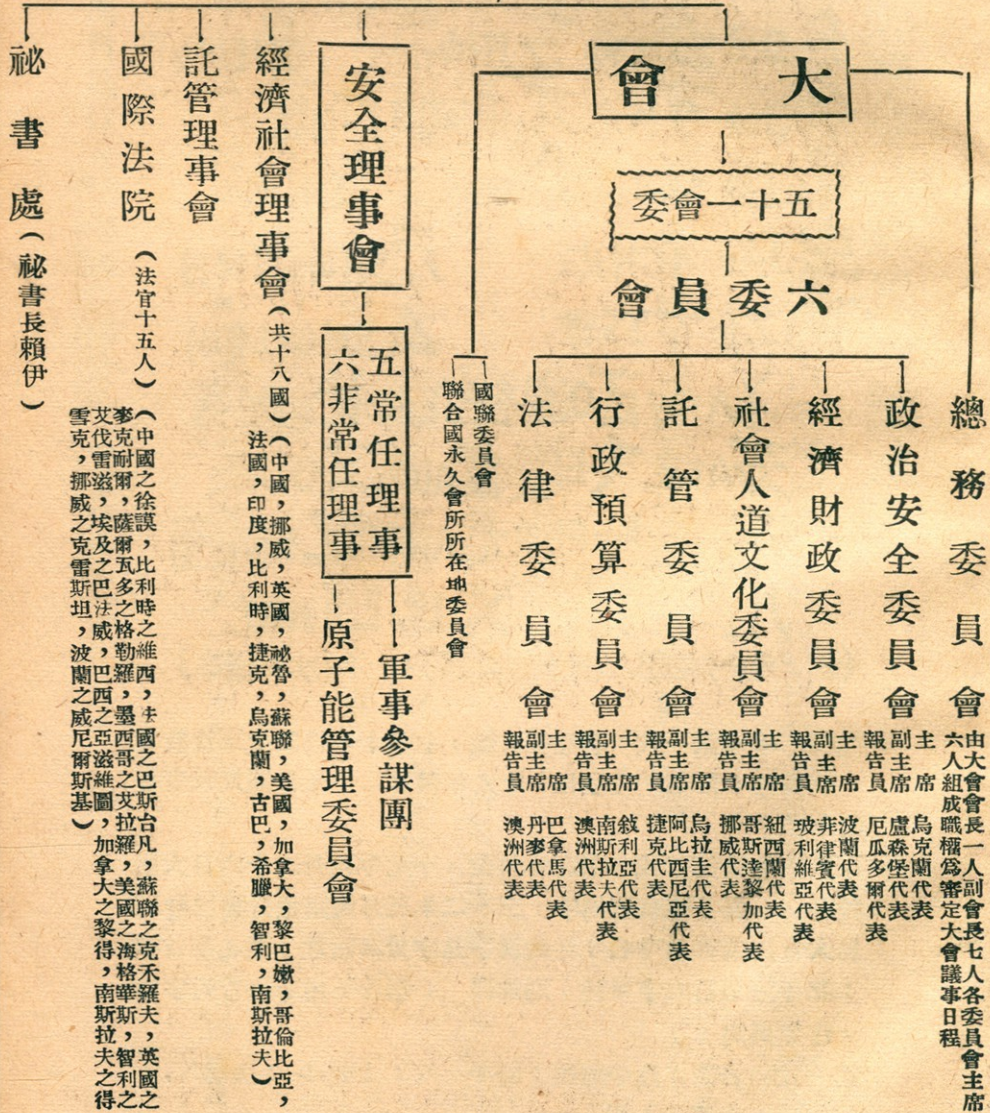 大會
五十一會委
六委員會
總務委員會
由大會會長一人副會長七人各委員會主席
六人組成職權爲審定大會議事日程
政治安全委員會
主席 烏克蘭代表
副主席 盧森堡代表
報告員 厄瓜多爾代表
經濟財政委員會
主席 波蘭代表
副主席 菲律賓代表
報告員 玻利維亞代表
社會人道文化委員會
主席 紐西蘭代表
副主席 哥斯達黎加代表
報告員 挪威代表
託管委員會
主席 烏拉圭代表
副主席 阿比西尼亞代表
報告員 捷克代表
行政預算委員會
主席 敍利亞代表
副主席 南斯拉夫代表
報告員 澳洲代表
法律委員會
主席 巴拿馬代表
副主席 丹麥代表
報告員 澳洲代表
國聯委員會
聯合國永久會所所在地委員會
安全理事會
五常任理事
六非常任理事
軍事參謀團
原子能管理委員會
經濟社會理事會(共十八國)(中國,挪威,英國,祕魯,蘇聯,美國,加拿大,黎巴嫩,哥倫比亞,
法國,印度,比利時,捷克,烏克蘭,古巴,希臘,智利,南斯拉夫)
託管理事會
國際法院(法官十五人)(中國之徐謨,比利時之維西,法國之巴斯台凡,蘇聯之克禾羅夫,英國之
麥克耐爾,薩爾瓦多之格勒羅,墨西哥之艾拉羅,美國之海格華斯,智利之
艾伐雷滋,埃及之巴法威,巴西之亞滋維圖,加拿大之黎得,南斯拉夫之得
雪克,挪威之克雷斯坦,波蘭之威尼爾斯基)
祕書處(祕書長賴伊)